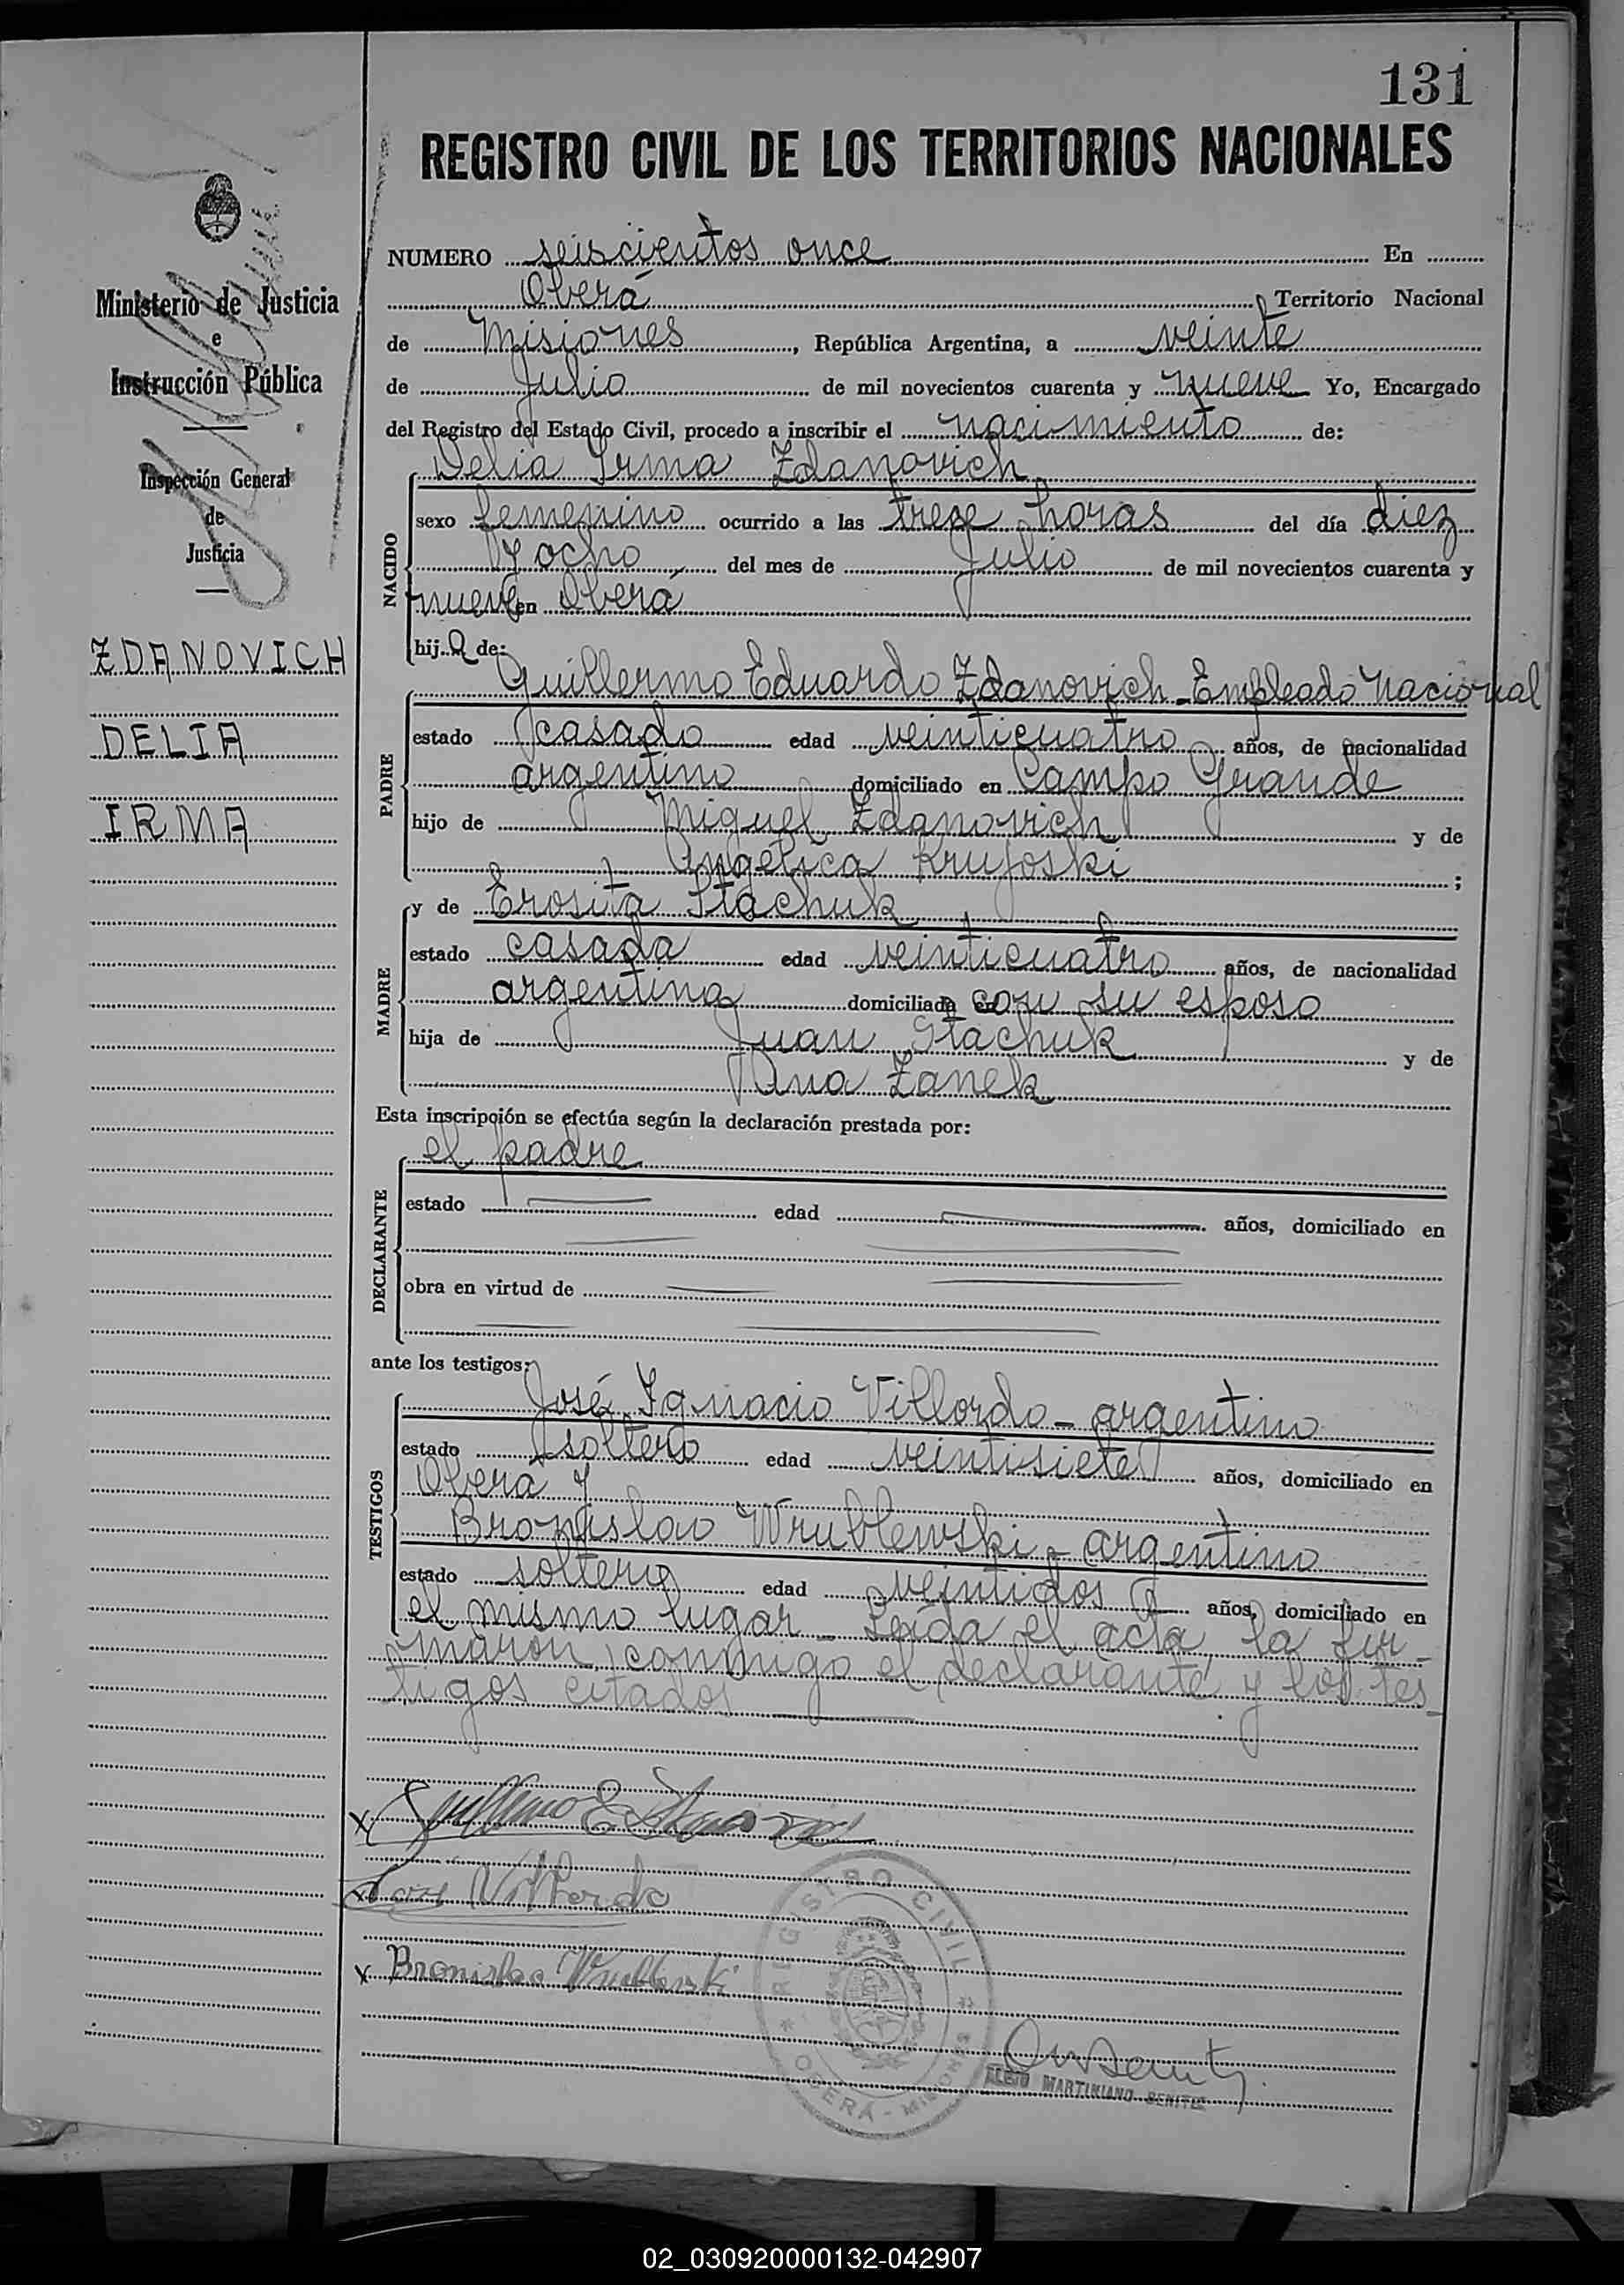 131
REGISTRO CIVIL DE LOS TERRITORIOS NACIONALES
Ministerio de Justicia
e
Instrucción Pública
Inspección General
de
Justicia
ZDANOVICH
DELIA
IRMA
NUMERO seiscientos once En
Oberá, Territorio Nacional
de Misiones, República Argentina, a veinte
de Julio de mil novecientos cuarenta y nueve Yo, Encargado
del Registro del Estado Civil, procedo a inscribir el nacimiento de:
Delia Irma Zdanovich
NACIDO
sexo femenino ocurrido a las trece horas del día diez
y ocho del mes de Julio de mil novecientos cuarenta y
nueve en Oberá
hija de:
Guillermo Eduardo Zdanovich - Empleado Nacional
PADRE
estado casado edad veinticuatro años, de nacionalidad
argentino domiciliado en Campo Grande
hijo de Miguel Zdanovich y de
Angélica Krujoski ;
y de Erosita Stachuk
MADRE
estado casada edad veinticuatro años, de nacionalidad
argentina domiciliada con su esposo
hija de Juan Stachuk y de
Ana Zanek
Esta inscripción se efectúa según la declaración prestada por:
el padre
DECLARANTE
estado edad años, domiciliado en
obra en virtud de
ante los testigos:
José Ignacio Villordo - argentino
TESTIGOS
estado soltero edad veintisiete años, domiciliado en
Oberá y
Bronislao Wrublewski - argentino
estado soltero edad veintidos años, domiciliado en
el mismo lugar - Leída el acta, la fir-
maron conmigo el declarante y los tes-
tigos citados
x Guillermo E
x José Villordo
x Bronislao
REGISTRO CIVIL
OBERÁ - MISIONES
ALEJO MARTINIANO BENITEZ
02_030920000132-042907